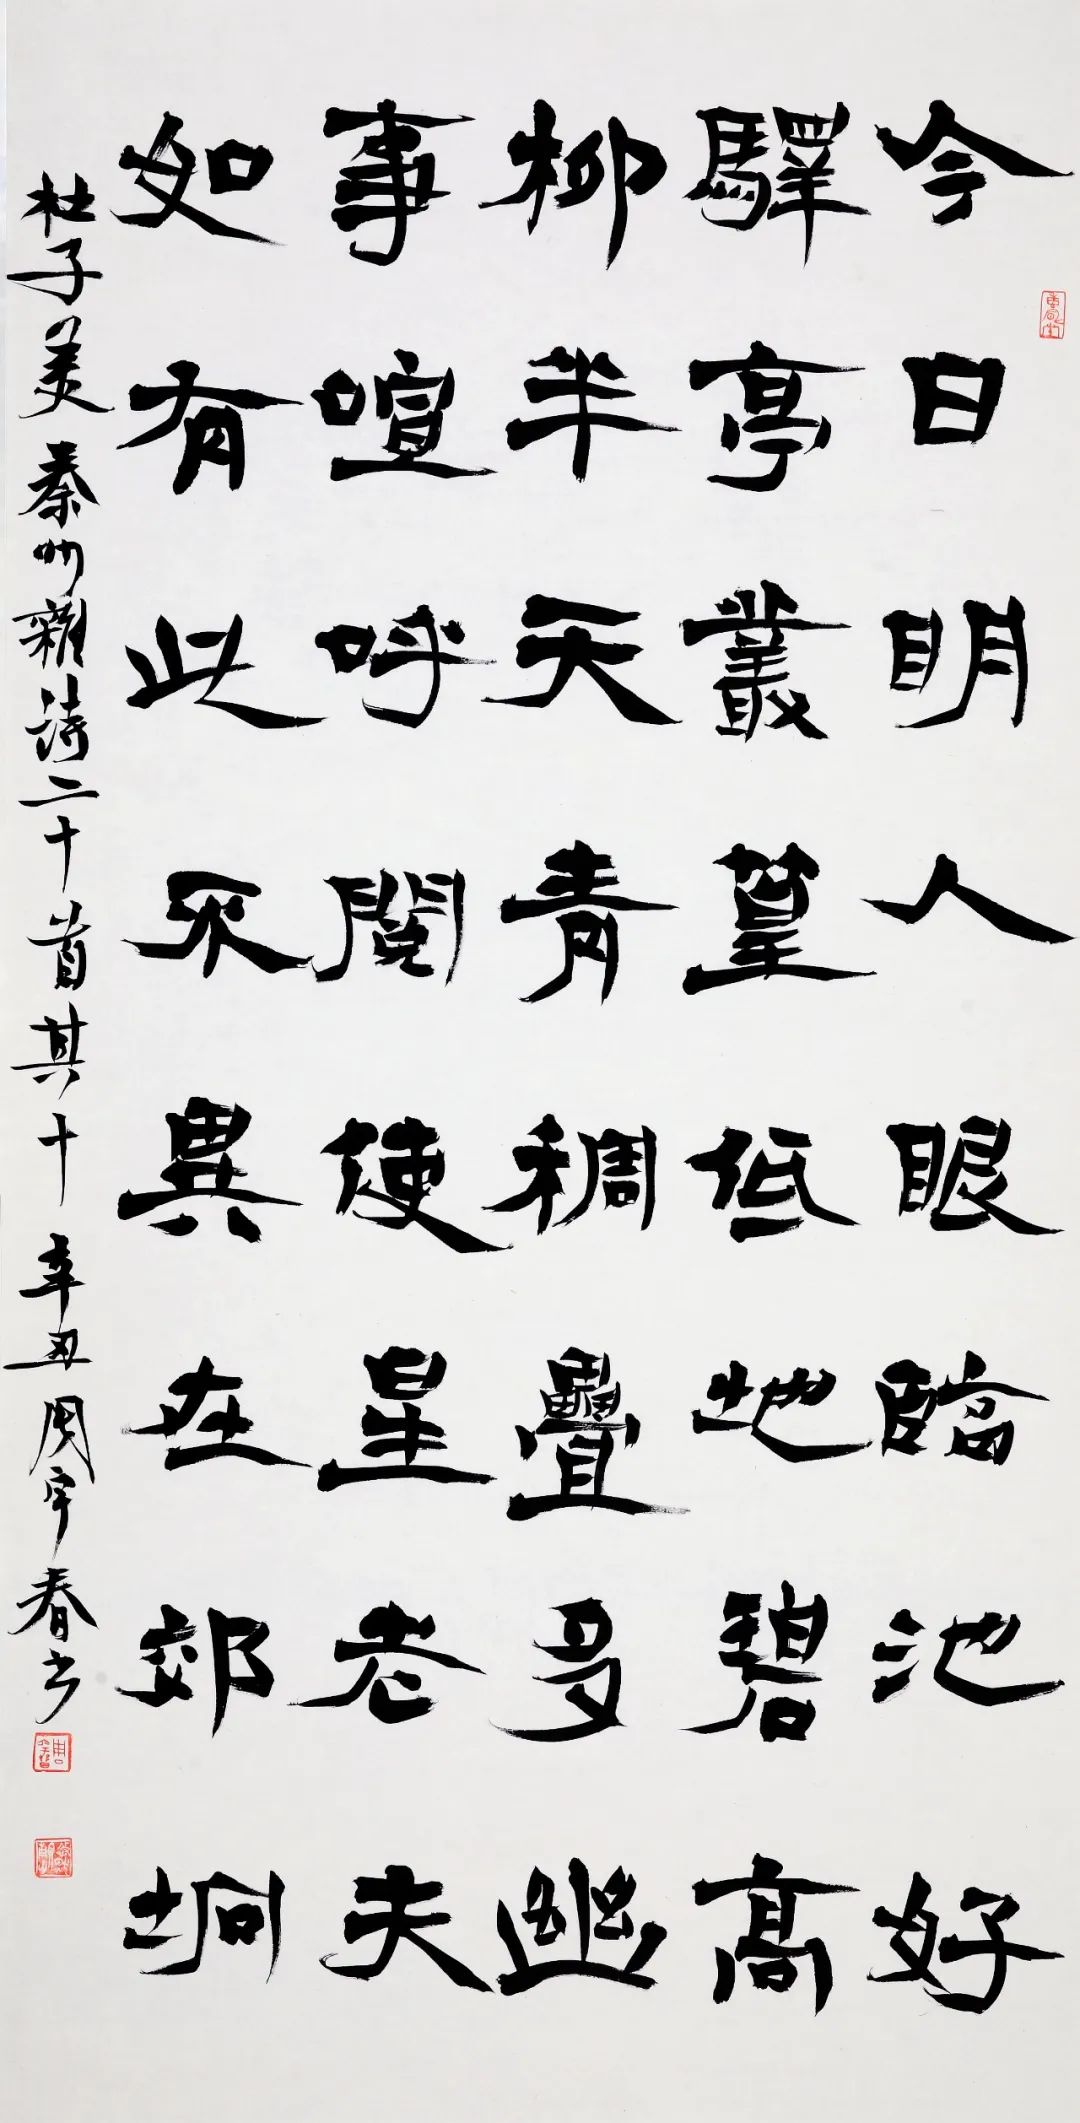 今日明人眼臨池好
驛亭叢篁低地碧高
柳半天青稠疊多幽
事喧呼閱使星老夫
如有此不異在郊坰
杜子美秦州雜詩二十首其十辛丑周宇春书